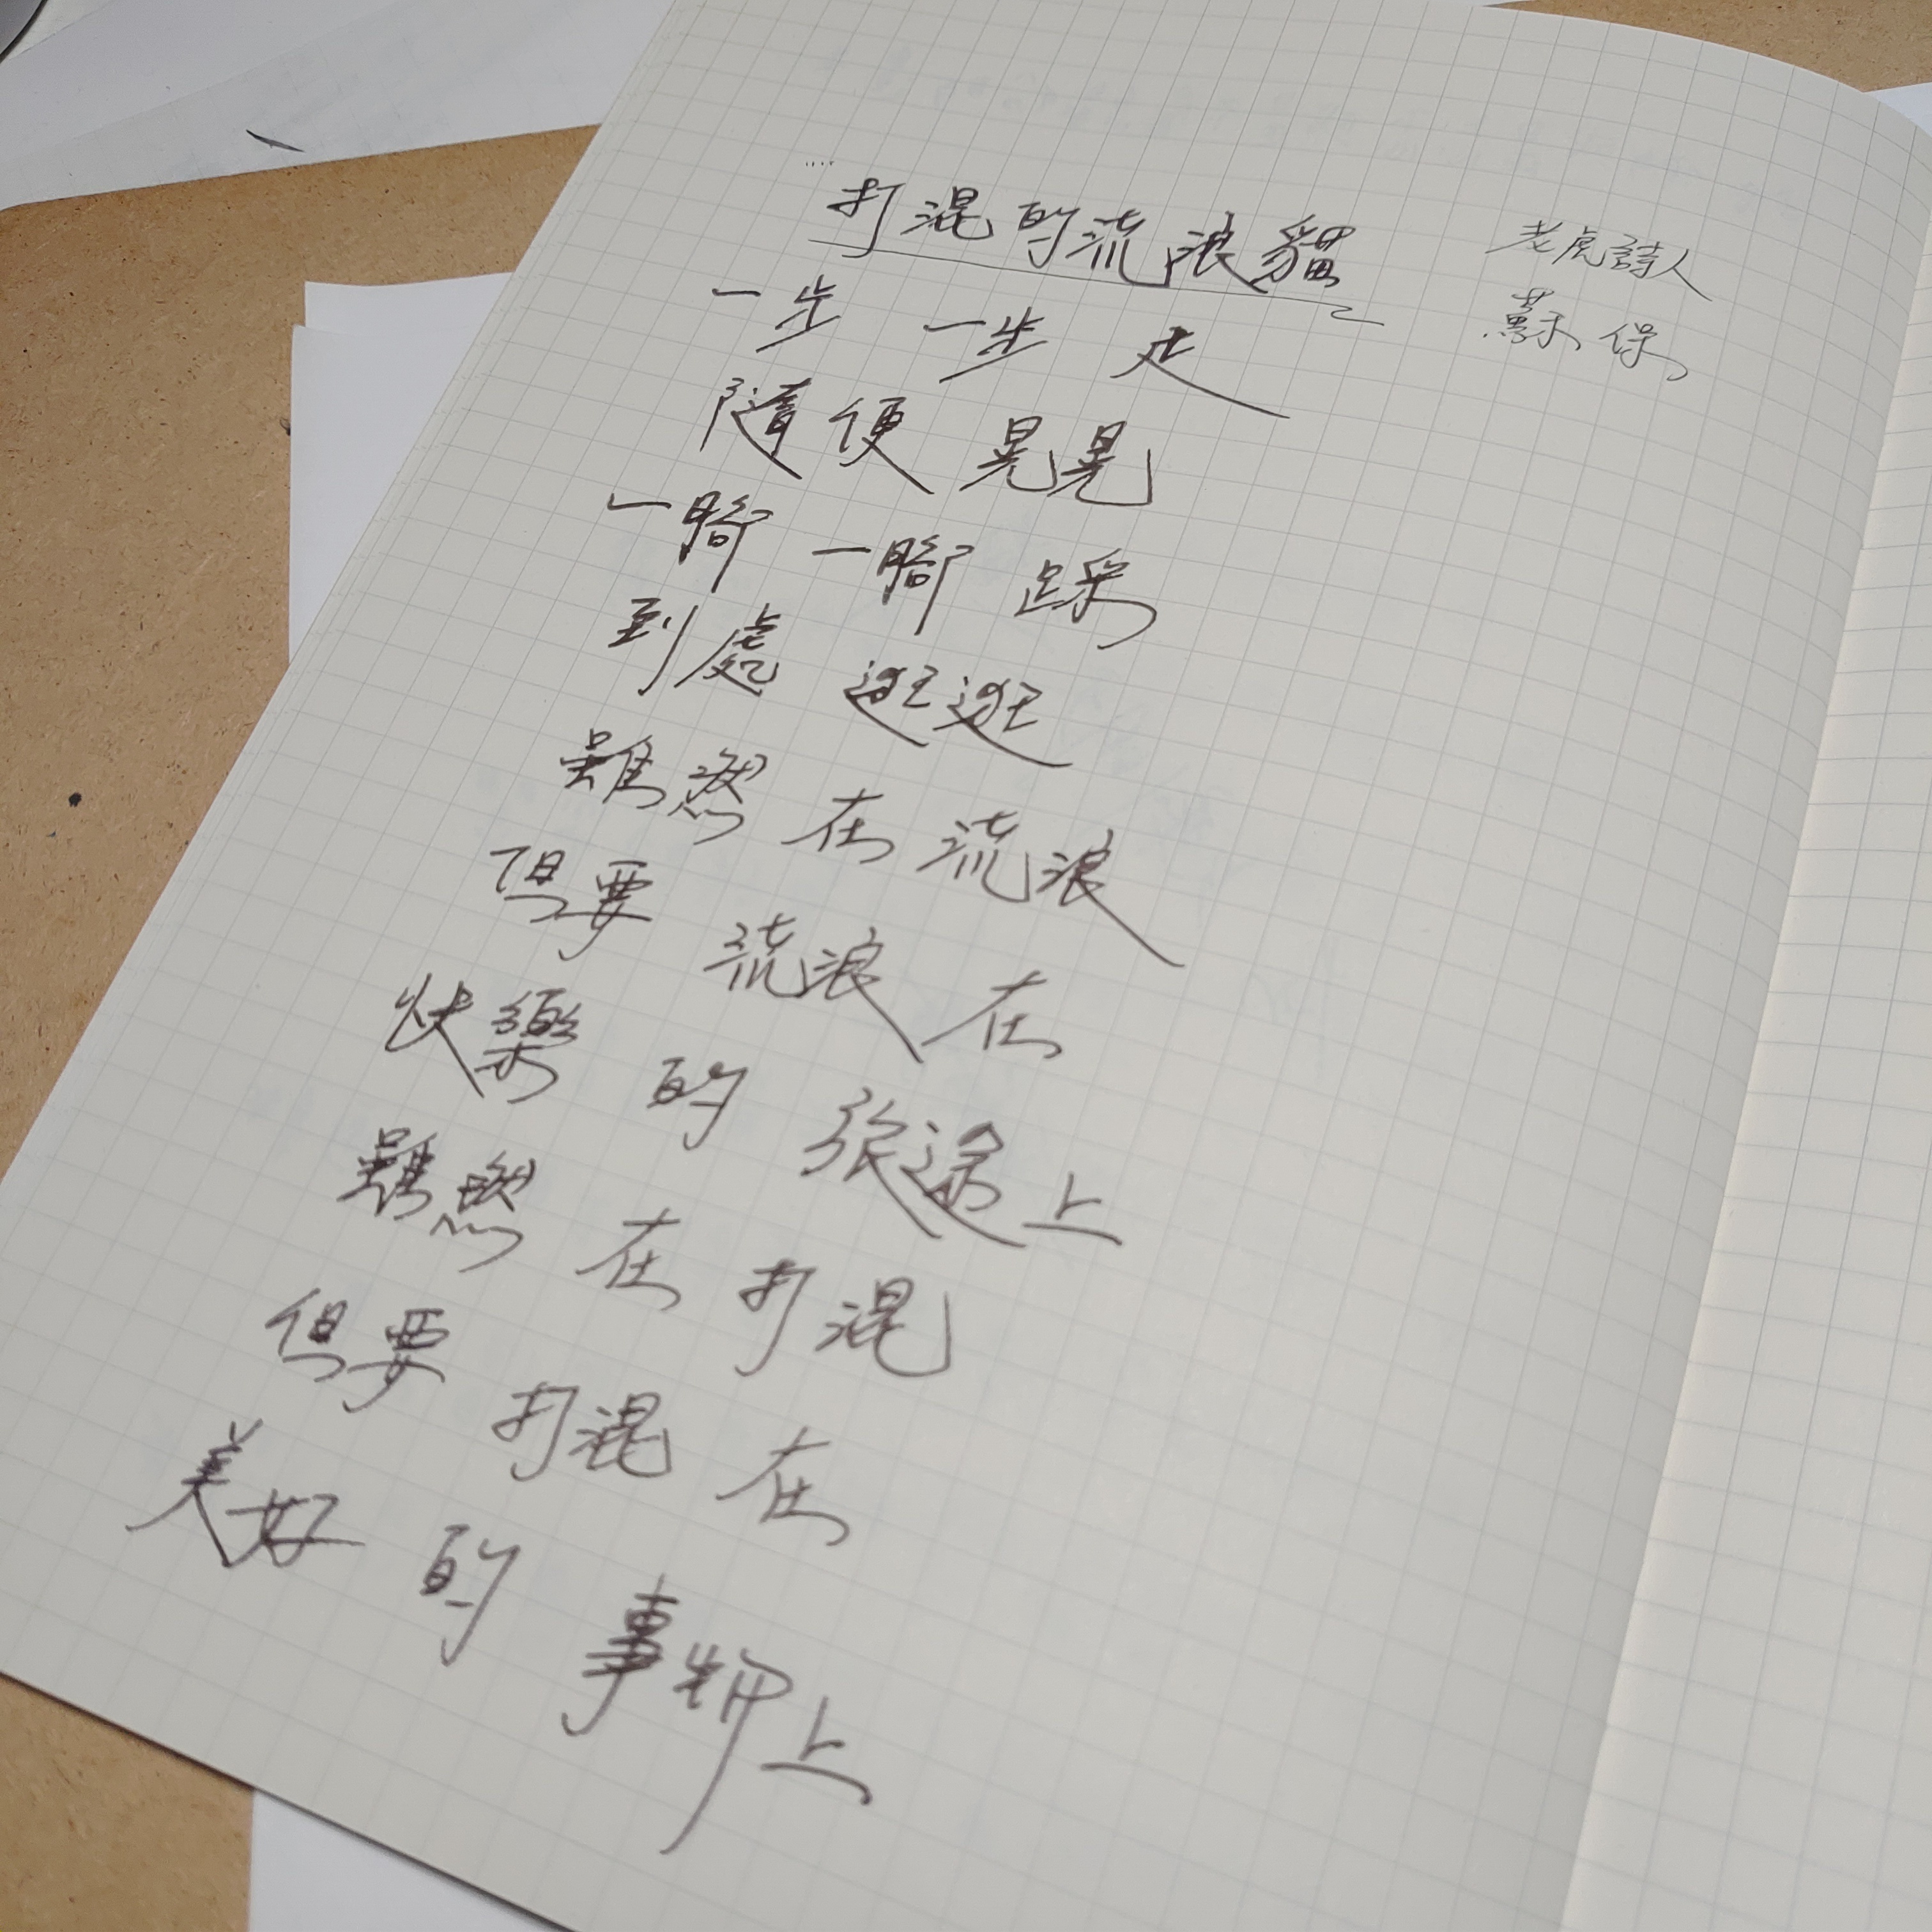 打混的流浪貓
老虎詩人
蘇保
一步 一步 走
隨便 晃晃
一腳 一腳 踩
到處 逛逛
雖然 在 流浪
但要 流浪 在
快樂 的 旅途上
雖然 在 打混
但要 打混 在
美好 的 事物上